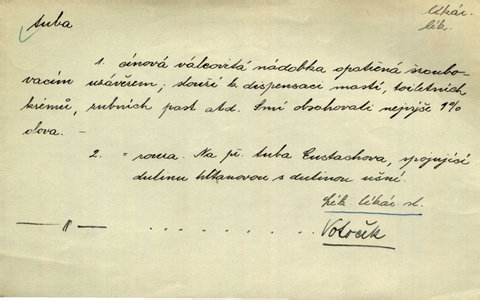 tuba
lékár.
lék.
1. cínová válcovitá nádobka opatřená šroubo-
vacím uzávěrem; slouží k dispensaci mastí, toiletních
krémů, zubních past atd. Smí obsahovati nejvýše 1%
olova. –
2. = roura. Na př. tuba Eustachova, spojující
dutinu hltanovou s dutinou ušní.
Lék. lékár. sl.
—— " —— . . . . . . . . . Votoček